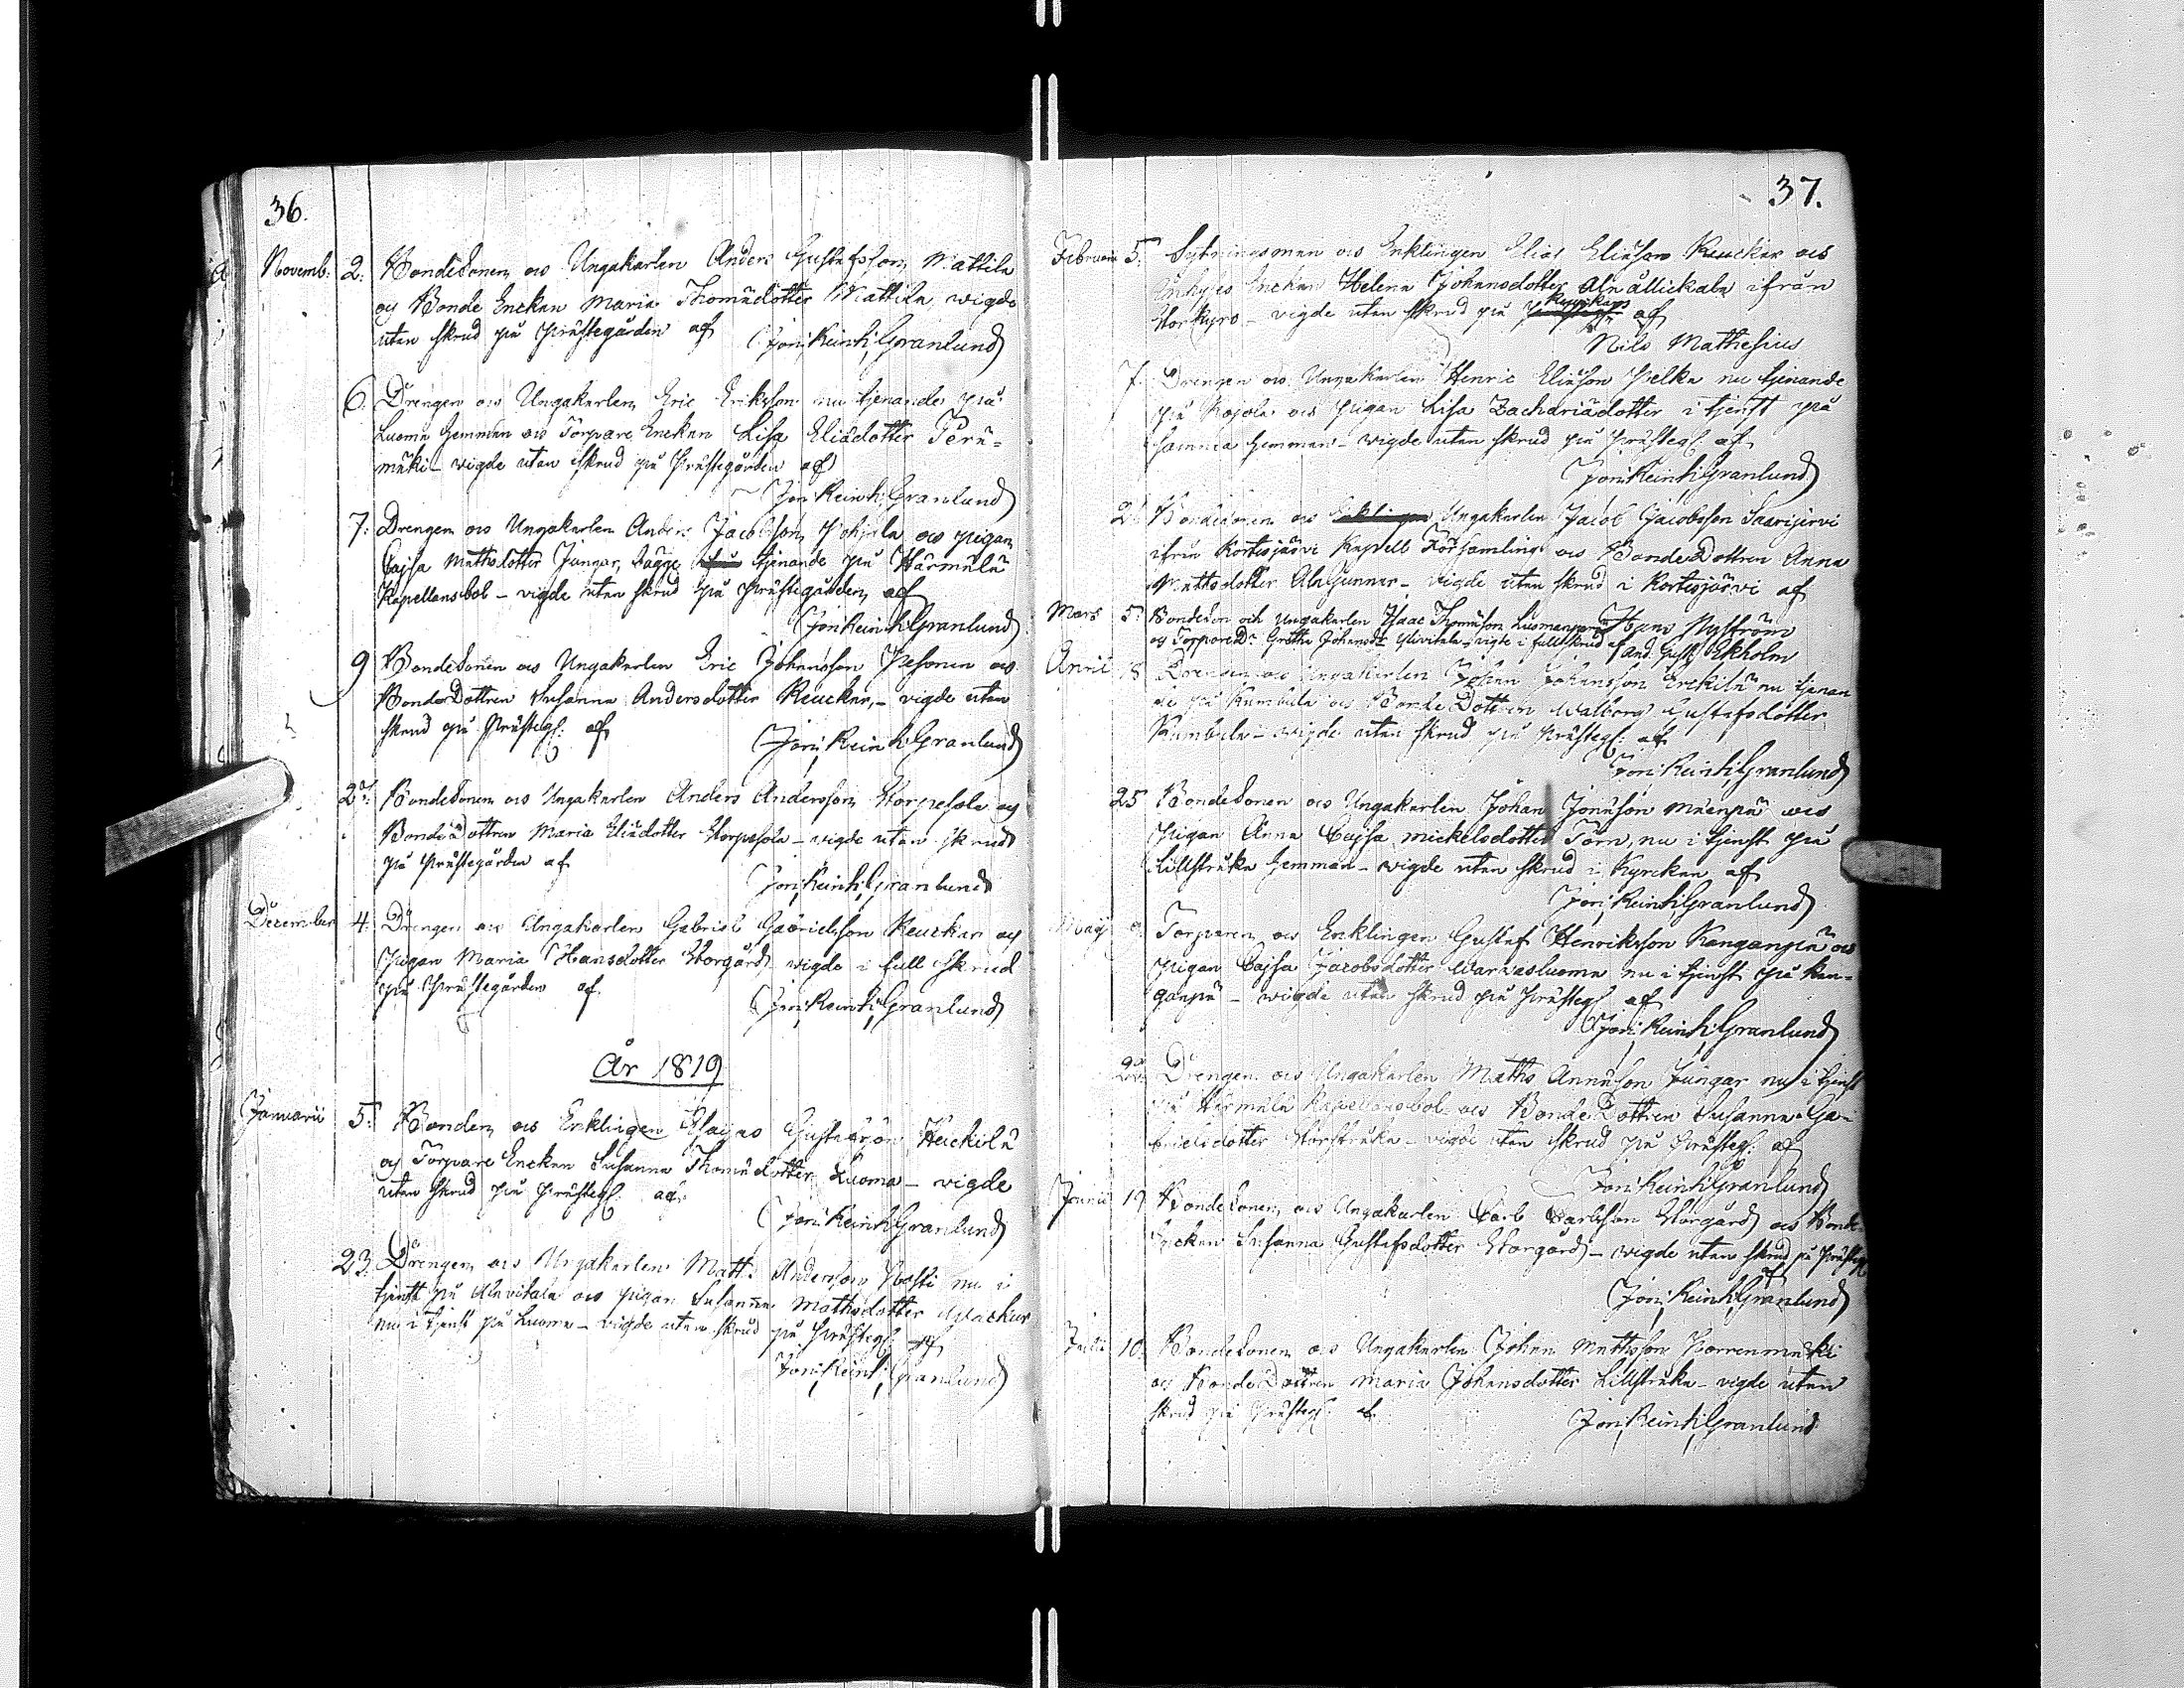 36.
Novemb: 2. BondeSonen och Ungakarlen Anders Gustafsson Mattila
och Bonde Enckan Maria Thomædotter Mattila, vigde
utan skrud på Prästegården af Joh: Reinh: Granlund
6. Drengen och Ungakarlen Eric Eriksson nu tjenande på
Luoma Hemman och Torpare Enckan Lisa Eliædotter Perä-
mäki – vigde utan skrud på Prästegården af
Joh: Reinh: Granlund
7. Drengen och Ungakarlen Anders Jacobsson Pohjola och pigan
Cajsa Mathsdotter Jungar, tjenande på Härmälä
Kapellansbol – vigde utan skrud på Prästegården af
Joh: Reinh: Granlund
9 BondeSonen och Ungakarlen Eric Johansson Pesonen och
BondeDottren Susanna Andersdotter Keuckar, – vigde utan
skrud på Prästeg: af Joh: Reinh: Granlund
BondeSonen och Ungakarlen Anders Andersson Storpesola och
BondeDottren Maria Eliædotter Storpesola – vigde utan skrud
på Prästegården af
Joh: Reinh: Granlund
December 4. Drengen och Ungakarlen Gabriel Gabrielsson Keuckar och
Pigan Maria Hansdotter Storgård – vigde i full skrud
på Prästegården af Joh: Reinh: Granlund
År 1819
Januarii 5. Bonden och Enklingen Esajas Gustafsson Heickilä
och Torpare Enckan Susanna Thomædotter Luoma – vigde
utan skrud på Prästeg: af
Joh: Reinh: Granlund
23. Drengen och Ungakarlen Matts Andersson nu i
tjenst på och pigan Susanna Mathsdotter
nu i tjenst på Luoma – vigde utan skrud på Prästeg: af
Joh: Reinh: Granlund
37.
Februarii 5. Sytningsman och Enklingen Elias Eliæson Keuckar och
Inhyses Enckan Helena Johansdotter ifrån
Storkyro – vigde utan skrud på af
Nils Mathesius
7. Drengen och Ungakarlen Henric Eliæson Pelka nu tjenande
på Kojola och pigan Lisa Zachariædotter i tjenst på
samma Hemman – vigde utan skrud på Prästeg: af
Joh: Reinh: Granlund
BondeSonen och Ungakarlen Jacob Jacobsson Saarijervi
ifrån Kortesjärvi Kapell Församling och BondeDottren Anna
Mattsdotter AlaGunnar – vigde utan skrud i Kortesjärvi af
Hans Nyström
Mars 5. BondeSon och Ungakarlen Isaac Thomæson Luomanpää
och TorpareDr Greta Johansdr Ylivitala – vigde i full skrud af And: Gust: Ekholm
April 18 Drengen och Ungakarlen Johan Johansson Erckilä nu tjenan
de på Kumbula och BondeDottren Walborg Gustafsdotter
Kumbula – vigde utan skrud på Prästeg: af
Joh: Reinh: Granlund
25 BondeSonen och Ungakarlen Johan Jonæson Mäenpää och
Pigan Anna Cajsa Mickelsdotter Törn, nu i tjenst på
Lillstråka Hemman – vigde utan skrud i Kyrckan af
Joh: Reinh: Granlund
Maij Torparen och Enklingen Gustaf Henriksson Kanganpää och
Pigan Cajsa Jacobsdotter Warvasluoma nu i tjenst på Kan-
ganpää – vigde utan skrud på Prästeg: af
Joh: Reinh: Granlund
Drengen och Ungakarlen Maths Annæson Jungar nu i tjenst
på Härmälä Kapellansbol och BondeDottren Susanna Ga-
brielsdotter Storstråka – vigde utan skrud på Prästeg: af
Joh: Reinh: Granlund
Junii 19 BondeSonen och Ungakarlen Carl Carlsson Storgård och Bonde
Enckan Susanna Gustafsdotter Storgård – vigde utan skrud på Prästeg:
af
Joh: Reinh: Granlund
Julii 10. BondeSonen och Ungakarlen Johan Mathsson Horrenmäki
och BondeDottren Maria Johansdotter Lillstråka – vigde utan
skrud på Prästeg: af
Joh: Reinh: Granlund